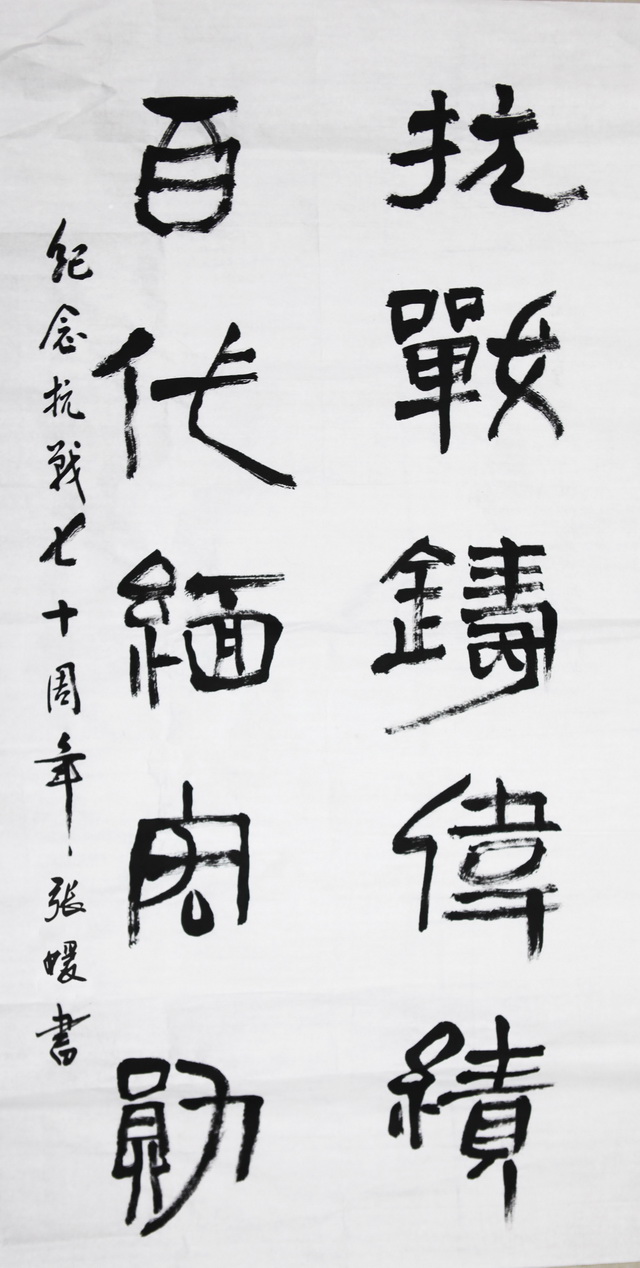 抗戰鑄偉績
百代緬宏勛
紀念抗戰七十周年 張暖書